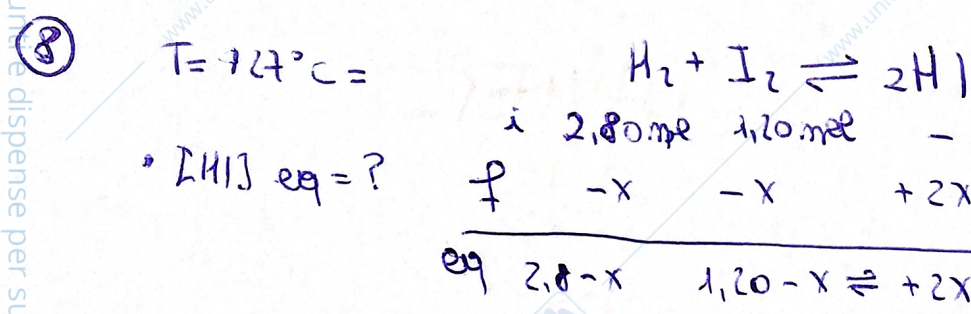 8
T= 127°C=
H₂ + I₂ ⇌ 2HI
i 2,80 mol 1,20 mol -
• [HI] eq = ?
f -x -x +2x
eq 2,8-x 1,20-x ⇌ +2x
dispense per su